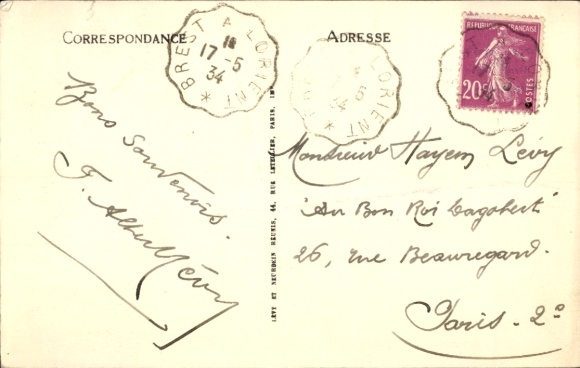 CORRESPONDANCE
ADRESSE
BREST A LORIENT *
1E
17-5
34
LORIENT *
RÉPUBLIQUE FRANÇAISE
20c
POSTES
Bons Souvenirs.
F. Albert Lévy
LÉVY ET NEURDEIN RÉUNIS, 44, RUE LETELLIER, PARIS, IMP.
Monsieur Hayem Lévy
"Au Bon Roi Dagobert"
26, rue Beauregard.
Paris - 2º